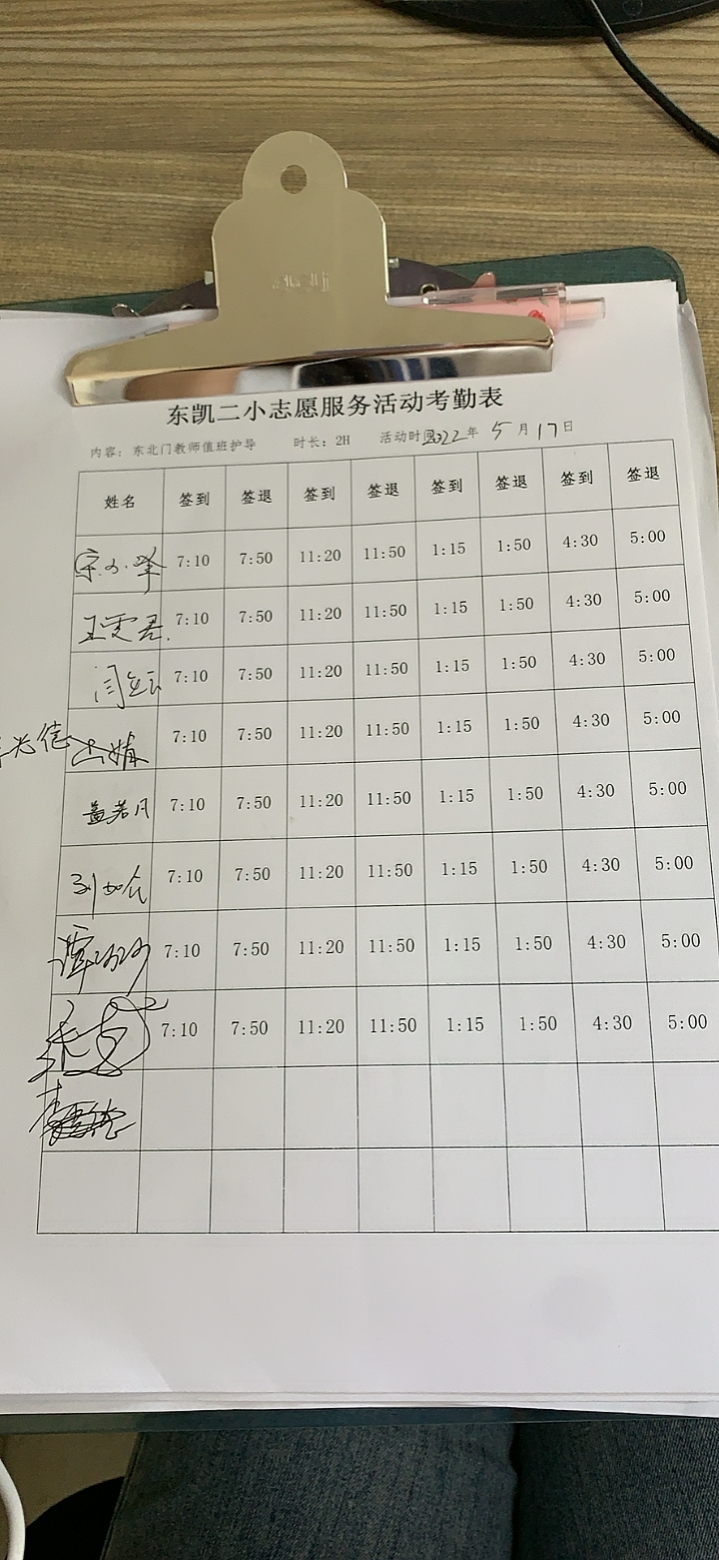 东凯二小志愿服务活动考勤表
内容：东北门教师值班护导 时长：2H 活动时间2022年 5月17日
姓名 签到 签退 签到 签退 签到 签退 签到 签退
7:10 7:50 11:20 11:50 1:15 1:50 4:30 5:00
王雯君 7:10 7:50 11:20 11:50 1:15 1:50 4:30 5:00
7:10 7:50 11:20 11:50 1:15 1:50 4:30 5:00
7:10 7:50 11:20 11:50 1:15 1:50 4:30 5:00
盖若月 7:10 7:50 11:20 11:50 1:15 1:50 4:30 5:00
7:10 7:50 11:20 11:50 1:15 1:50 4:30 5:00
7:10 7:50 11:20 11:50 1:15 1:50 4:30 5:00
7:10 7:50 11:20 11:50 1:15 1:50 4:30 5:00